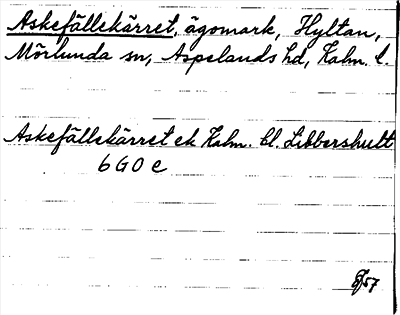 Askefällekärret, ägomark, Hyltan,
Mörlunda sn, Aspelands hd, Kalm. l.
Askefällekärret ek Kalm. bl. Libbershult
6 G 0 e